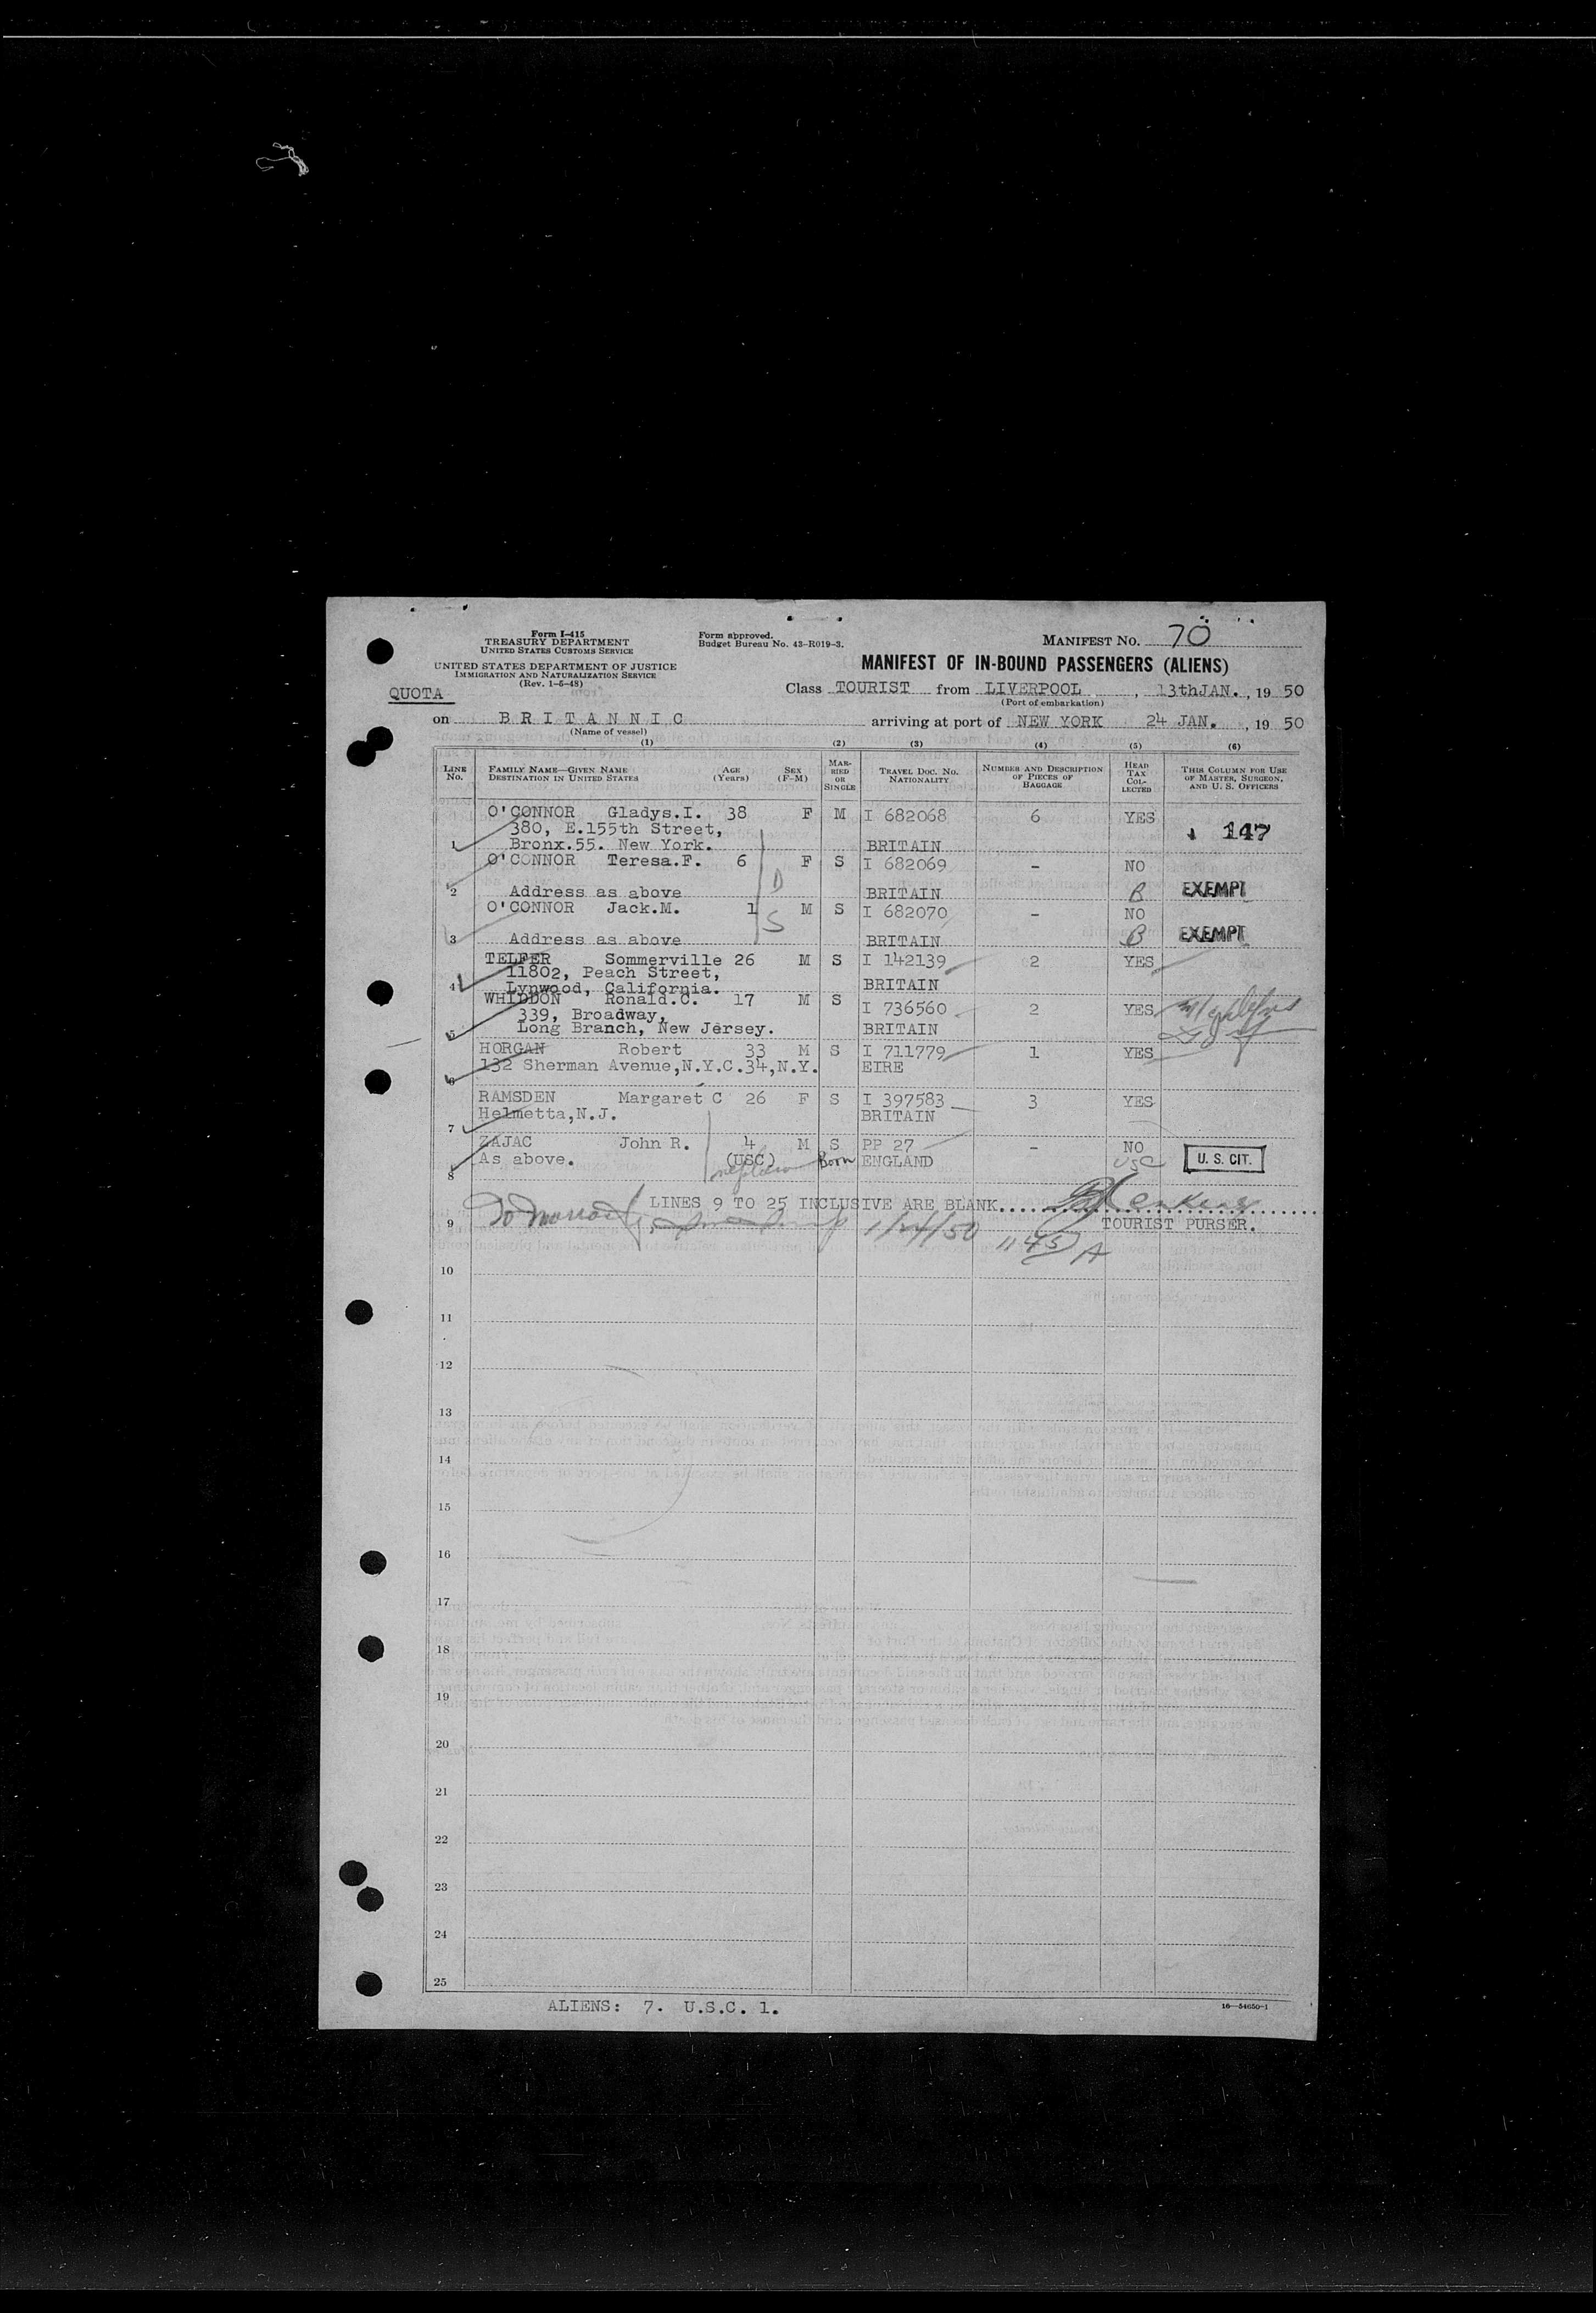 Form I-415
TREASURY DEPARTMENT
UNITED STATES CUSTOMS SERVICE
UNITED STATES DEPARTMENT OF JUSTICE
IMMIGRATION AND NATURALIZATION SERVICE
(Rev. 1-6-48)
Form approved.
Budget Bureau No. 43-R019-3.
MANIFEST NO. 70
MANIFEST OF IN-BOUND PASSENGERS (ALIENS)
QUOTA
Class TOURIST from LIVERPOOL, 13thJAN., 19 50
(Port of embarkation)
on BRITANNIC arriving at port of NEW YORK 24 JAN., 19 50
(Name of vessel)
(1) (2) (3) (4) (5) (6)
LINE No. FAMILY NAME—GIVEN NAME DESTINATION IN UNITED STATES AGE (Years) SEX (F-M) MARRIED OR SINGLE TRAVEL DOC. NO. NATIONALITY NUMBER AND DESCRIPTION OF PIECES OF BAGGAGE HEAD TAX COLLECTED THIS COLUMN FOR USE OF MASTER, SURGEON, AND U. S. OFFICERS
O'CONNOR Gladys.I. 38 F M I 682068 6 YES
380, E.155th Street, 147
1 Bronx.55. New York. BRITAIN
O'CONNOR Teresa.F. 6 F S I 682069 - NO
2 Address as above BRITAIN B EXEMPT
O'CONNOR Jack.M. 1 M S I 682070 - NO
3 Address as above BRITAIN B EXEMPT
TELFER Sommerville 26 M S I 142139 2 YES
11802, Peach Street,
4 Lynwood, California. BRITAIN
WHIDDON Ronald.C. 17 M S I 736560 2 YES
339, Broadway,
5 Long Branch, New Jersey. BRITAIN
HORGAN Robert 33 M S I 711779 1 YES
6 132 Sherman Avenue,N.Y.C.34,N.Y. EIRE
RAMSDEN Margaret C 26 F S I 397583 3 YES
7 Helmetta,N.J. BRITAIN
ZAJAC John R. 4 M S PP 27 - NO
8 As above. (USC) nephew Born ENGLAND USC U. S. CIT.
LINES 9 TO 25 INCLUSIVE ARE BLANK
9 1/24/50 TOURIST PURSER.
1145 A
10
11
12
13
14
15
16
17
18
19
20
21
22
23
24
25
ALIENS: 7. U.S.C. 1.
16—54650-1